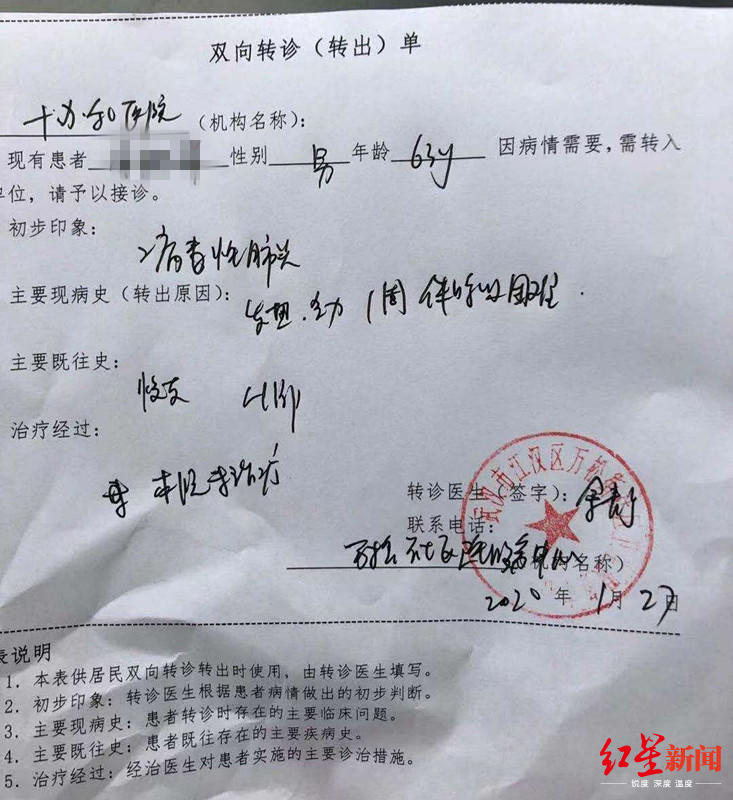 双向转诊（转出）单
医院（机构名称）：
现有患者 性别 男 年龄 63y 因病情需要，需转入
单位，请予以接诊。
初步印象：
病毒性肺炎
主要现病史（转出原因）：
发热 1周 伴呼吸困难.
主要既往史：
治疗经过：
转诊医生（签字）：
联系电话：
（机构名称）
2020年1月27日
武汉市江汉区万松街
表说明
1. 本表供居民双向转诊转出时使用，由转诊医生填写。
2. 初步印象：转诊医生根据患者病情做出的初步判断。
3. 主要现病史：患者转诊时存在的主要临床问题。
4. 主要既往史：患者既往存在的主要疾病史。
5. 治疗经过：经治医生对患者实施的主要诊治措施。
红星新闻
锐度 深度 温度